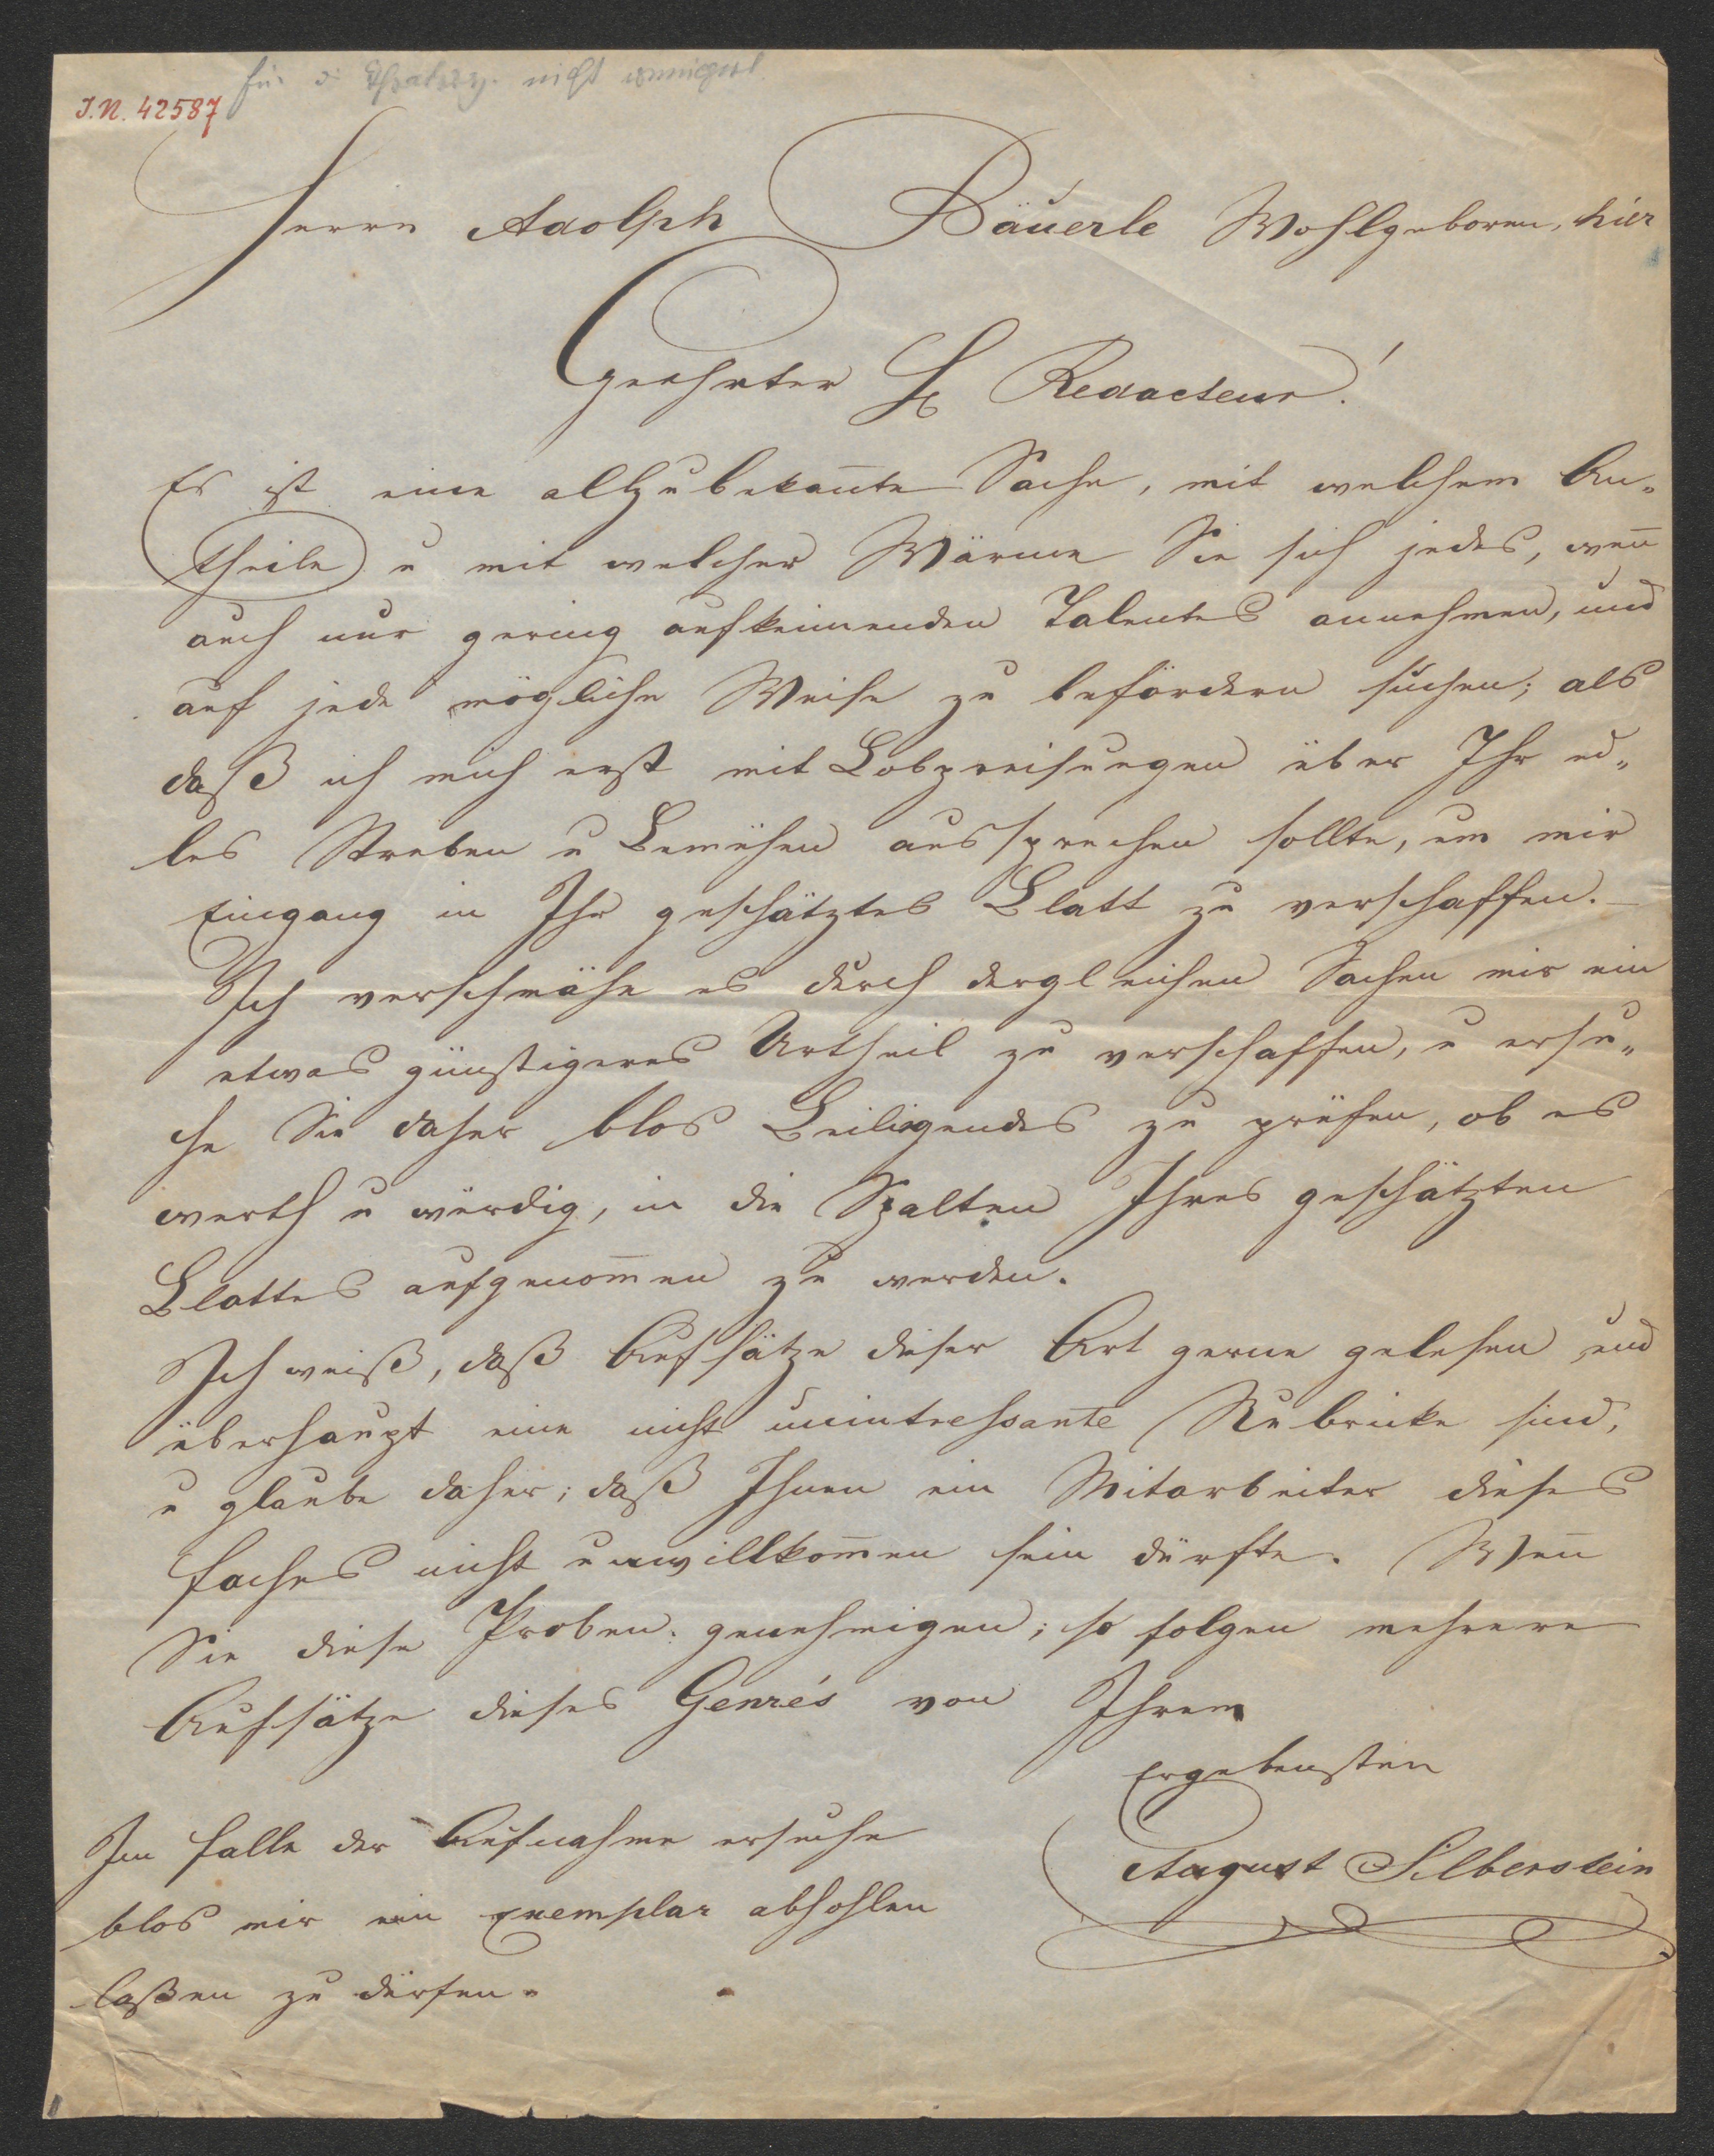 für d Theaterz. nicht
I.N. 42587
Herrn Adolph Bäuerle Wohlgeboren, hier
Geehrter H Redacteur!
Es ist eine allzubekan̄te Sache, mit welchem An„
theile u mit welcher Wärme Sie sich jedes, wen̄
auch nur gering aufkeimenden Talentes annehmen, und
auf jede mögliche Weise zu befördern suchen; als
daß ich mich erst mit Lobpreisungen über Ihr ed„
les Streben u Bemühen aussprechen sollte, um mir
Eingang in Ihr geschätztes Blatt zu verschaffen. –
Ich verschmähe es durch dergleichen Sachen mir ein
etwas günstigeres Urtheil zu verschaffen, u ersu„
che Sie daher blos Beiliegendes zu prüfen, ob es
werth u würdig, in die Spalten Ihres geschätzten
Blattes aufgenom̄en zu werden.
Ich weiß, daß Aufsätze dieser Art gerne gelesen und
überhaupt eine nicht unintressante Rubricke sind,
u glaube daher; daß Ihnen ein Mitarbeiter dieses
Faches nicht unwillkom̄en sein dürfte. Wen̄
Sie diese Proben genehmigen; so folgen mehrere
Aufsätze dieses Genrés von Ihrem
Ergebensten
August Silberstein
Im Falle der Aufnahme ersuche
blos mir ein Exemplar abhohlen
laßen zu dürfen.